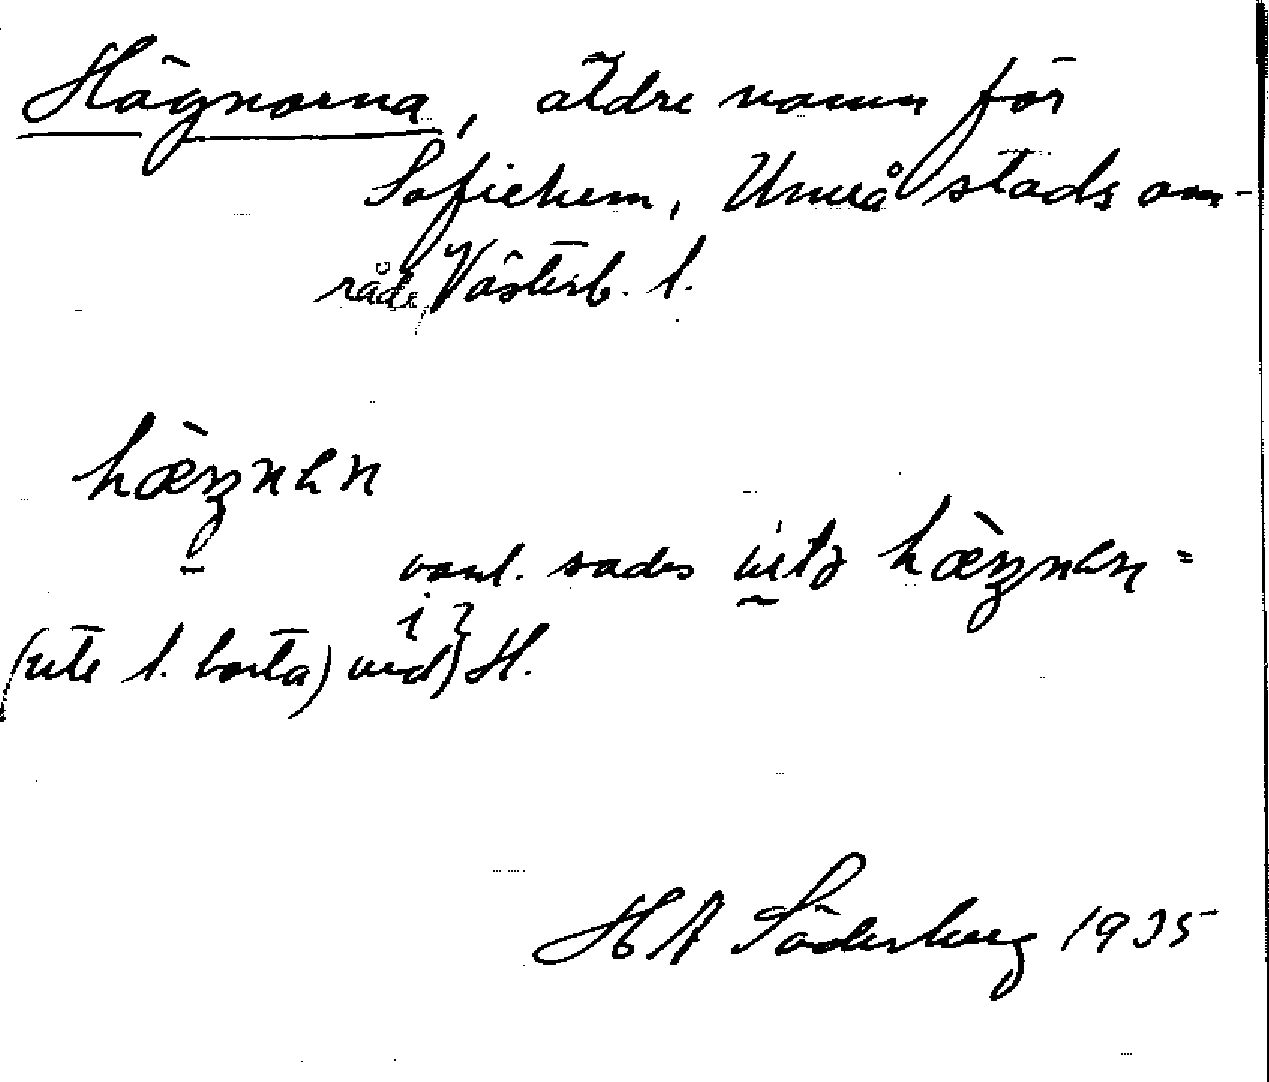 Hägnorna, äldre namn för
Sofiehem, Umeå stads om-
råde, Västerb. l.
vanl. sades
(ute l. borta) vid) H.
H A Söderberg 1935